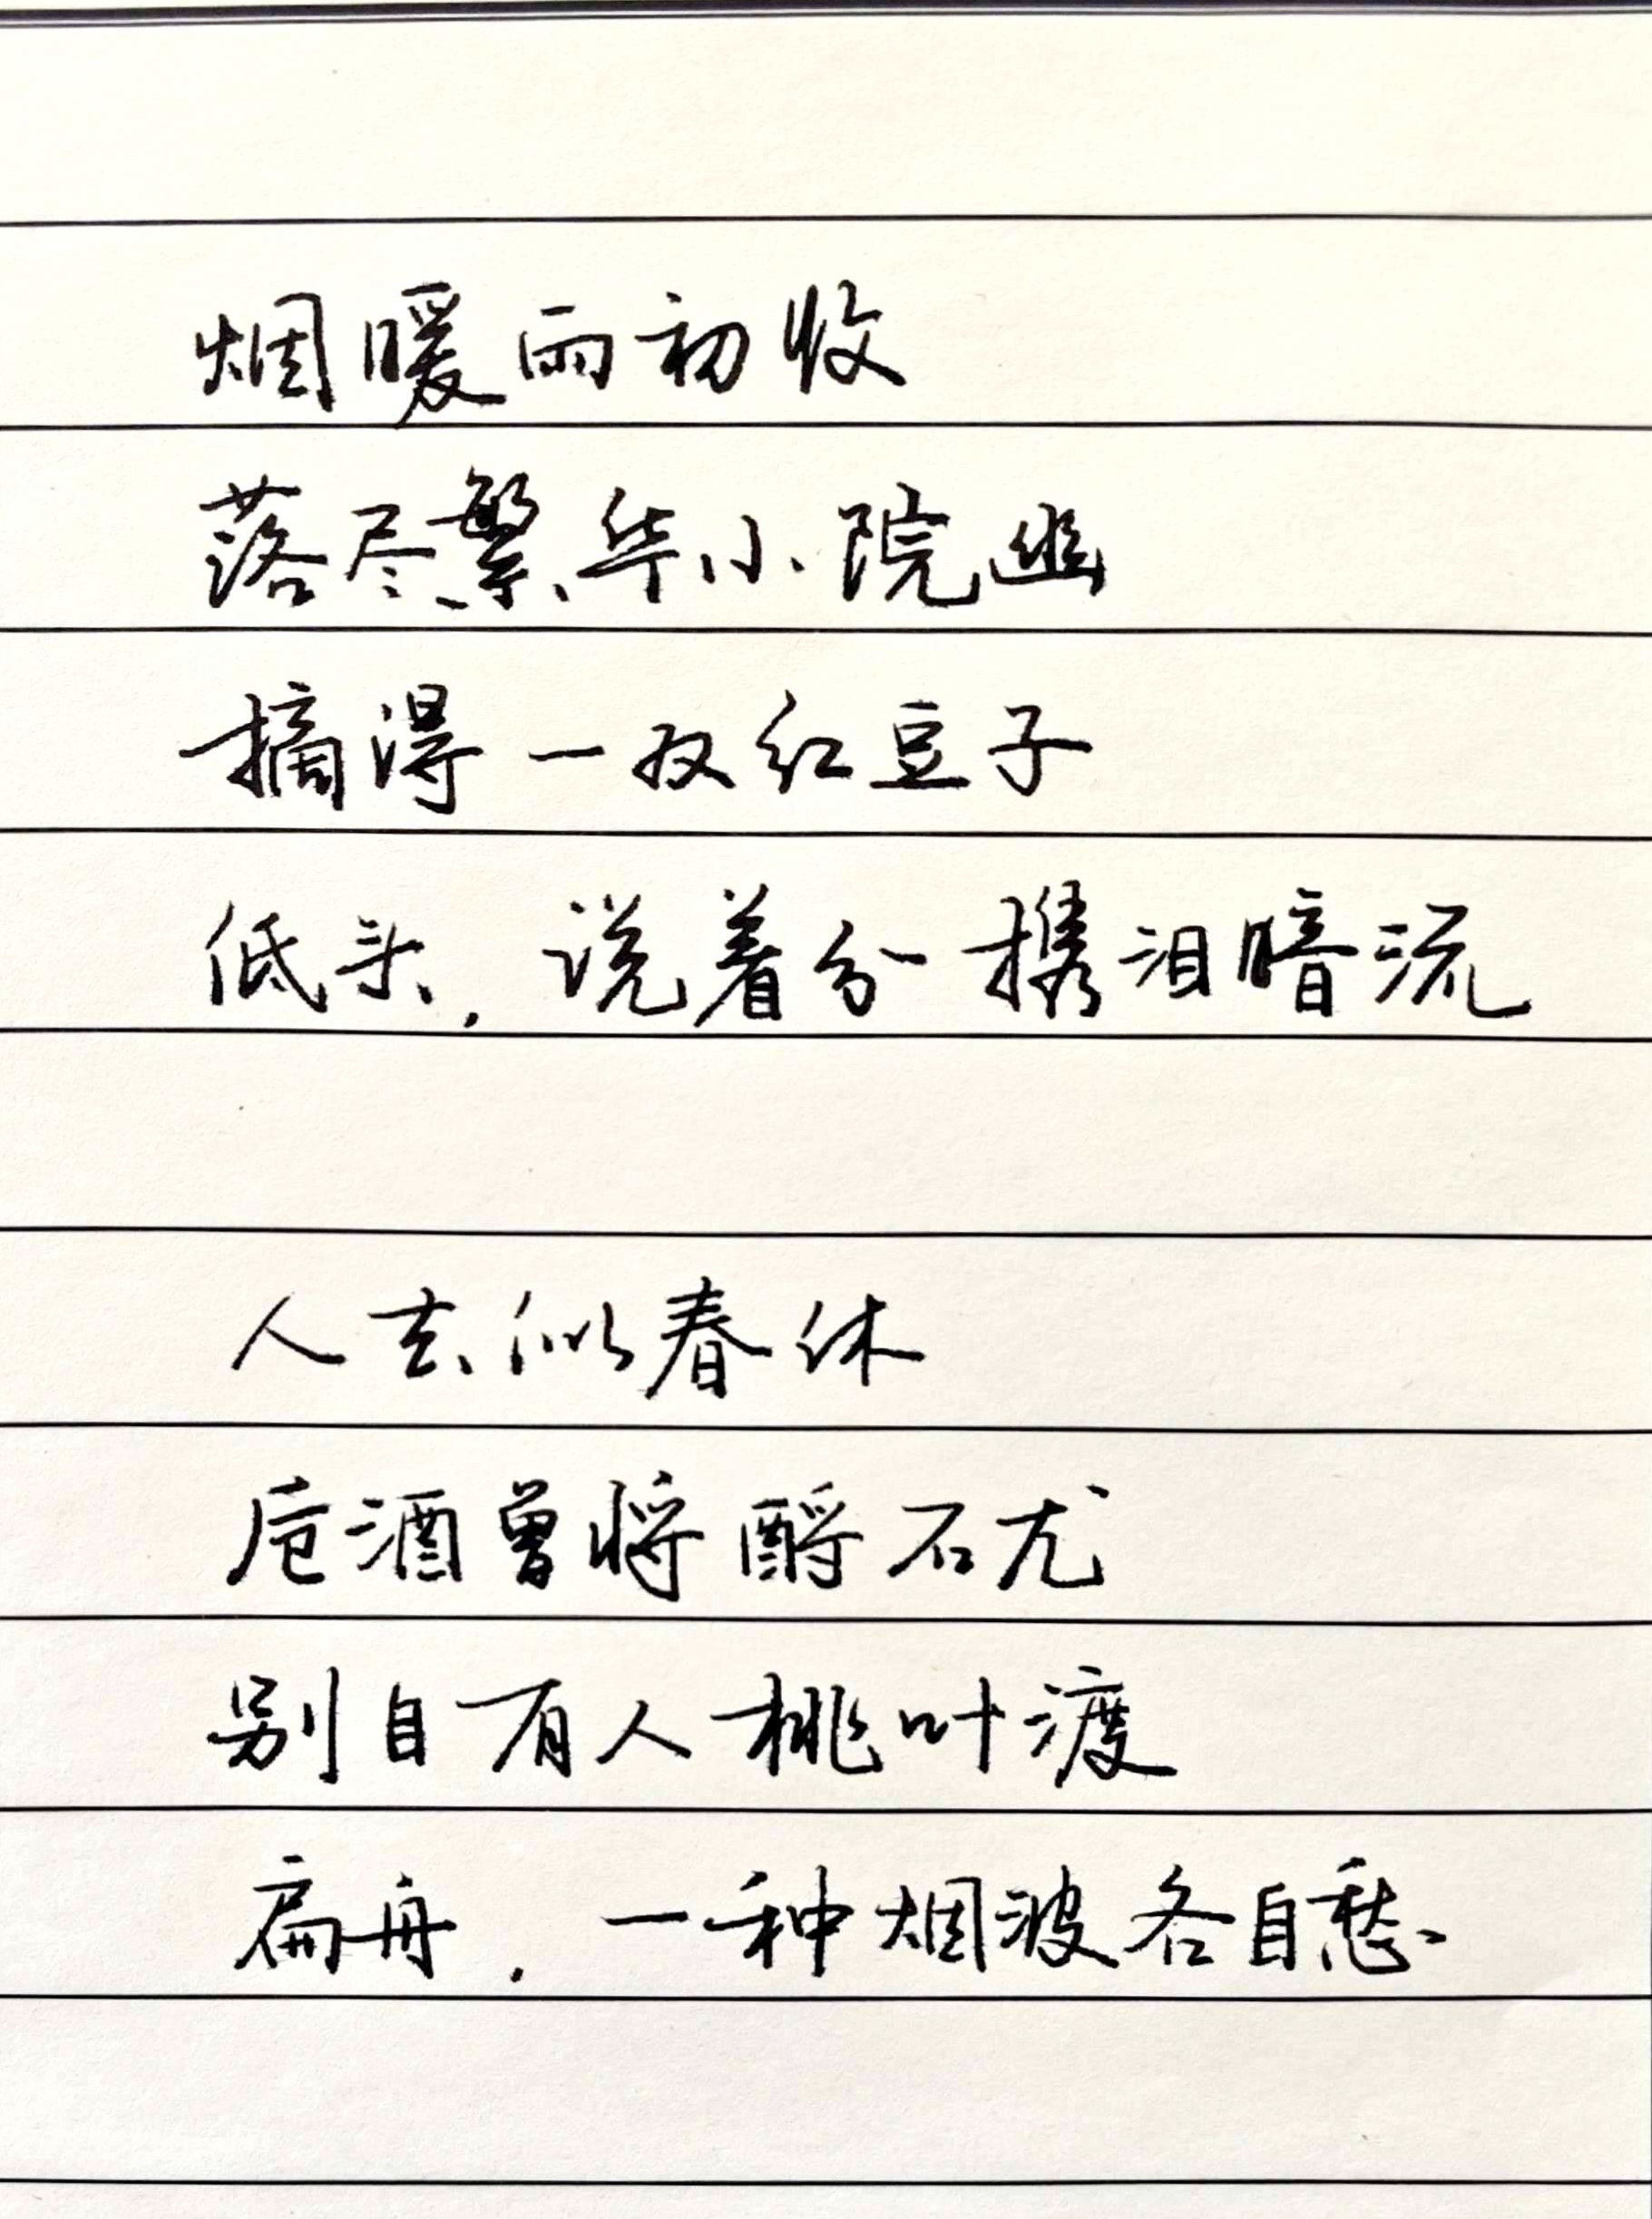 烟暖雨初收
落尽繁华小院幽
摘得一双红豆子
低头，说着分携泪暗流
人去似春休
卮酒曾将酹石尤
别自有人桃叶渡
扁舟，一种烟波各自愁